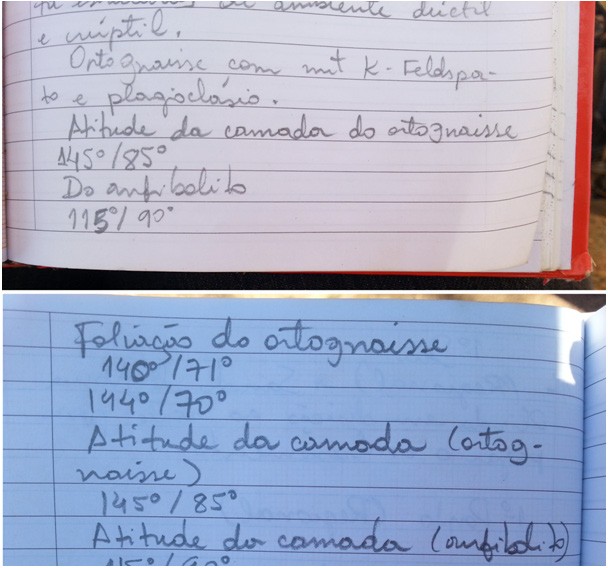 ambiente dúctil
e rúptil.
Ortognaisse com mit K-Feldspa-
to e plagioclásio.
Atitude da camada do ortognaisse
145°/85°
Do anfibolito
115°/90°
Foliação do ortognaisse
140°/71°
144°/70°
Atitude da camada (ortog-
naisse)
145°/85°
Atitude da camada (anfibolito)
115°/90°